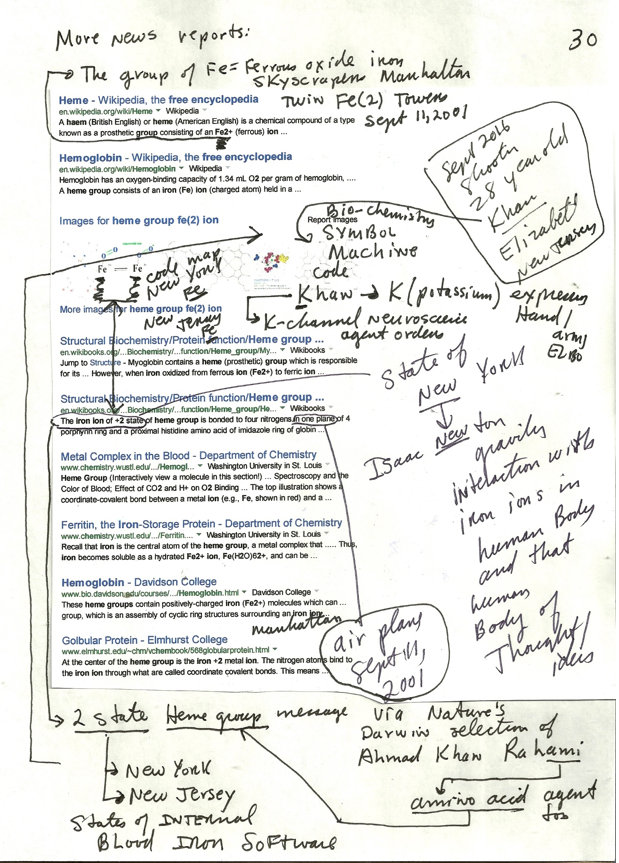 More news reports:
30
The group of Fe = Ferrous oxide iron
Skyscrapers Manhattan
Twin Fe(2) Towers
Sept 11, 2001
Heme - Wikipedia, the free encyclopedia
en.wikipedia.org/wiki/Heme ▾ Wikipedia ▾
A haem (British English) or heme (American English) is a chemical compound of a type
known as a prosthetic group consisting of an Fe2+ (ferrous) ion ...
Hemoglobin - Wikipedia, the free encyclopedia
en.wikipedia.org/wiki/Hemoglobin ▾ Wikipedia ▾
Hemoglobin has an oxygen-binding capacity of 1.34 mL O2 per gram of hemoglobin, ....
A heme group consists of an iron (Fe) ion (charged atom) held in a ...
Sept 2016
Shooter
28 year old
Khan
Elizabeth
New Jersey
Images for heme group fe(2) ion
Report images
Bio-chemistry
SYMBOL
Machine
code
Fe — Fe
code map
New York
Fe
More images for heme group fe(2) ion
New Jersey
Fe
Khan → K (potassium) express
Hand/
arm
K-channel neuroscience
agent orders
Structural Biochemistry/Protein function/Heme group ...
en.wikibooks.org/...Biochemistry/...function/Heme_group/My... ▾ Wikibooks ▾
Jump to Structure - Myoglobin contains a heme (prosthetic) group which is responsible
for its ... However, when iron oxidized from ferrous ion (Fe2+) to ferric ion ...
State of
New York
Structural Biochemistry/Protein function/Heme group ...
en.wikibooks.org/...Biochemistry/...function/Heme_group/He... ▾ Wikibooks ▾
The iron ion of +2 state of heme group is bonded to four nitrogens in one plane of 4
porphyrin ring and a proximal histidine amino acid of imidazole ring of globin ...
Isaac Newton
gravity
interaction with
iron ions in
human Body
and that
human
Body of
Thought/
ideas
Metal Complex in the Blood - Department of Chemistry
www.chemistry.wustl.edu/.../Hemogl... ▾ Washington University in St. Louis ▾
Heme Group (Interactively view a molecule in this section!) ... Spectroscopy and the
Color of Blood; Effect of CO2 and H+ on O2 Binding ... The top illustration shows a
coordinate-covalent bond between a metal ion (e.g., Fe, shown in red) and a ...
Ferritin, the Iron-Storage Protein - Department of Chemistry
www.chemistry.wustl.edu/~.../Ferritin.... ▾ Washington University in St. Louis ▾
Recall that iron is the central atom of the heme group, a metal complex that ..... Thus,
iron becomes soluble as a hydrated Fe2+ ion, Fe(H2O)62+, and can be ...
Hemoglobin - Davidson College
www.bio.davidson.edu/courses/.../Hemoglobin.html ▾ Davidson College ▾
These heme groups contain positively-charged iron (Fe2+) molecules which can ...
group, which is an assembly of cyclic ring structures surrounding an iron
manhattan
air plans
Sept 11,
2001
Golbular Protein - Elmhurst College
www.elmhurst.edu/~chm/vchembook/568globularprotein.html ▾
At the center of the heme group is the iron +2 metal ion. The nitrogen atoms bind to
the iron through what are called coordinate covalent bonds. This means ...
2 state Heme group message via Nature's
Darwin selection of
Ahmad Khan Rahami
New York
New Jersey
amino acid agent
States of INTERNAL
Blood Iron Software